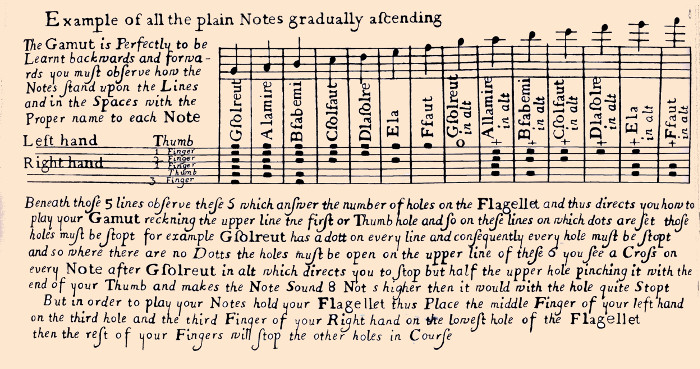 Example of all the plain Notes gradually aſcending
The Gamut is Perfectly to be
Learnt backwards and forwa-
rds you muſt obſerve how the
Notes ſtand upon the Lines
and in the Spaces with the
Proper name to each Note
Gſolreut
Alamire
Bfabemi
Cſolfaut
Dlaſolre
Ela
Ffaut
Gſolreut in alt
Allamire in alt
Bfabemi in alt
Cſolfaut in alt
Dlaſolre in alt
Ela in alt
Ffaut in alt
Left hand Thumb
1 Finger
2 Finger
Right hand 1 Finger
Thumb
3 Finger
Beneath thoſe 5 lines obſerve theſe 5 which anſwer the number of holes on the Flagellet and thus directs you how to
play your Gamut reckning the upper line the firſt or Thumb hole and ſo on theſe lines on which dots are ſet thoſe
holes muſt be ſtopt for example Gſolreut has a dott on every line and conſequently every hole muſt be ſtopt
and so where there are no Dotts the holes muſt be open on the upper line of theſe 5 you ſee a Croſs on
every Note after Gſolreut in alt which directs you to ſtop but half the upper hole pinching it with the
end of your Thumb and makes the Note Sound 8 Not s higher then it would with the hole quite Stopt
But in order to play your Notes hold your Flagellet thus Place the middle Finger of your left hand
on the third hole and the third Finger of your Right hand on the loweſt hole of the Flagellet
then the reſt of your Fingers will ſtop the other holes in Courſe